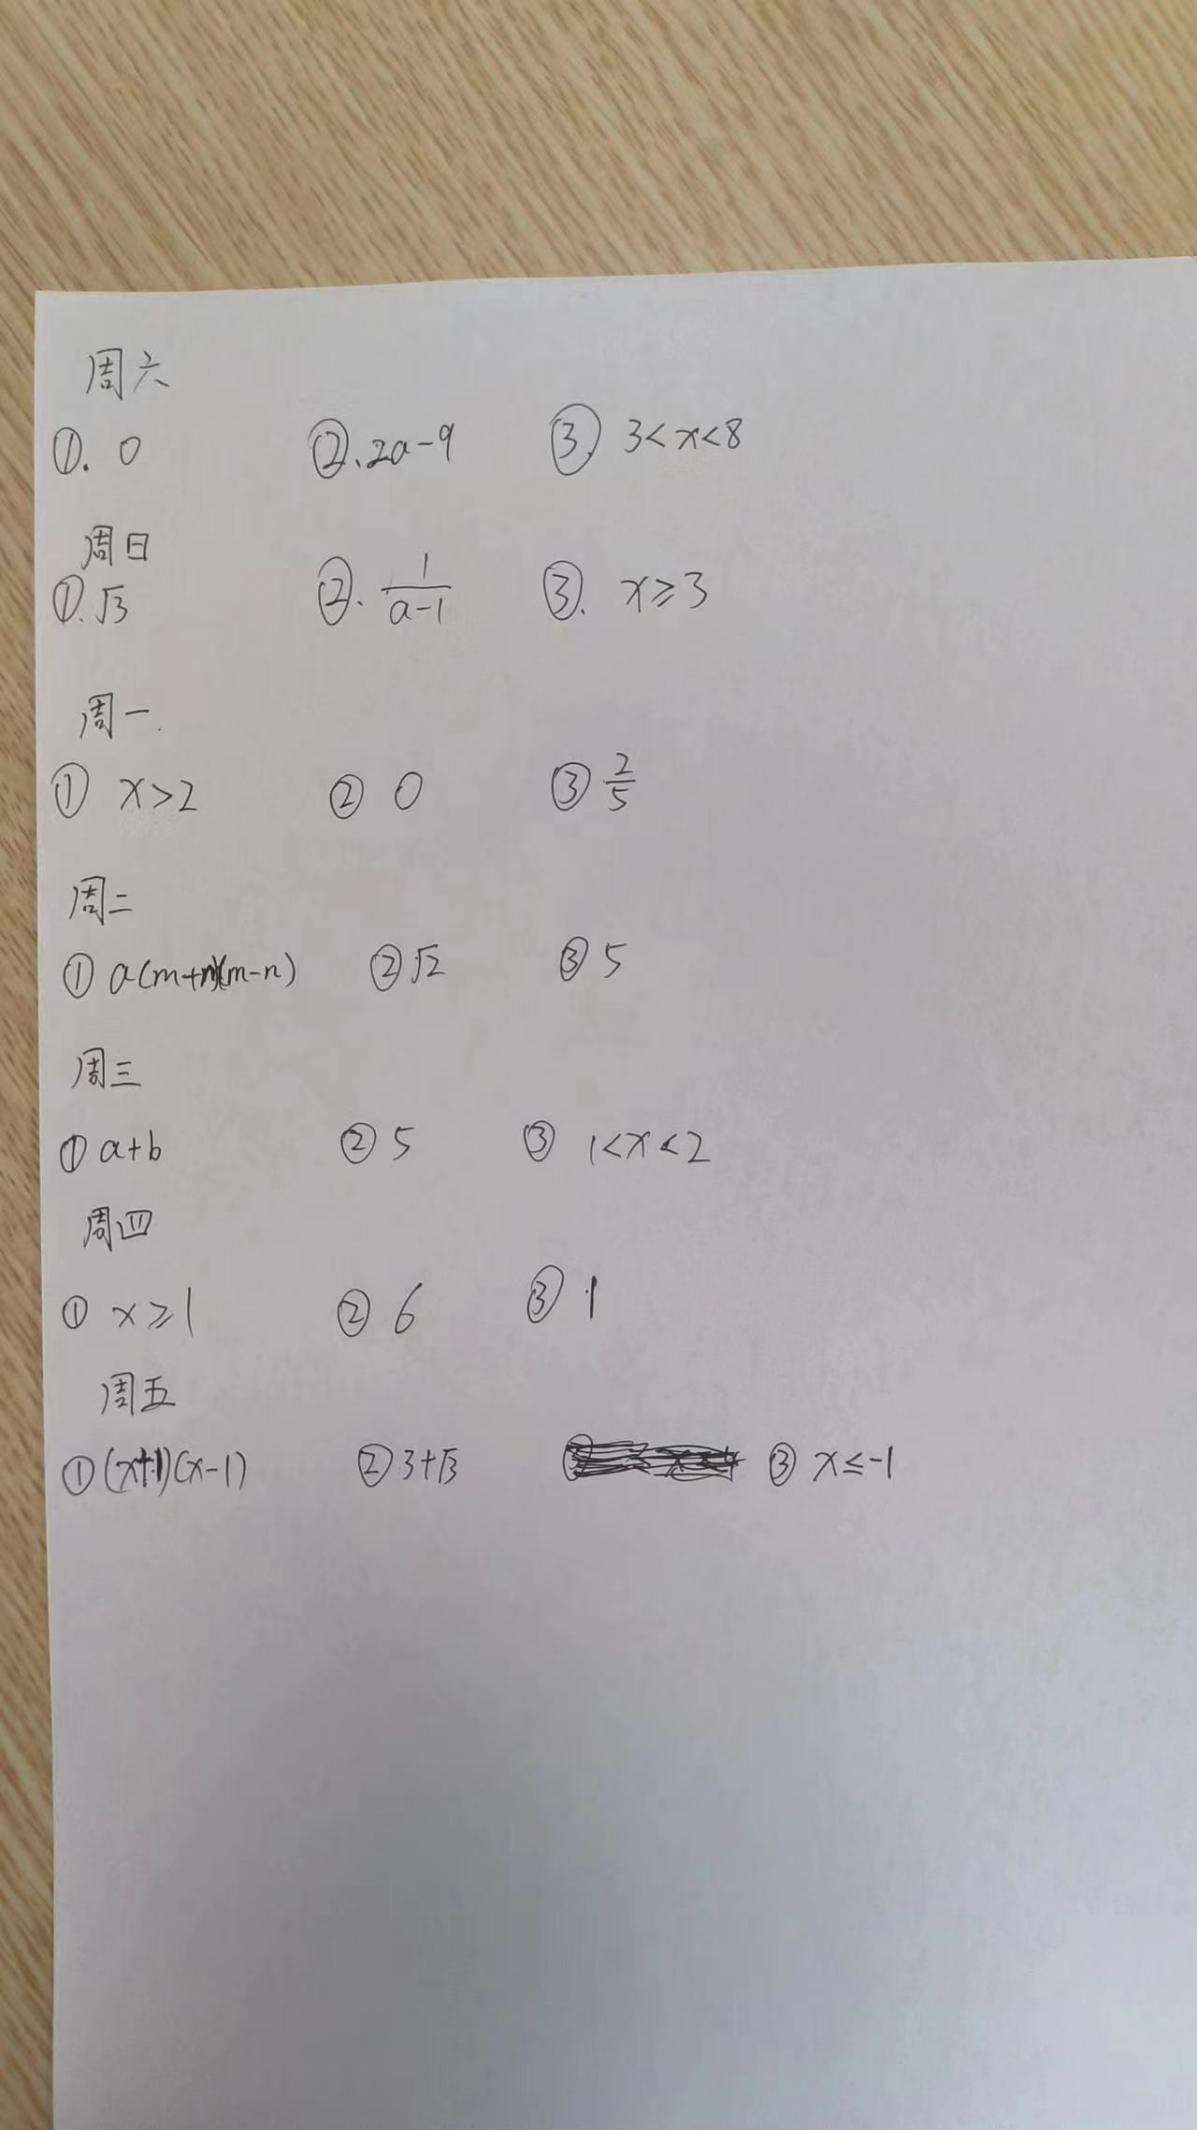 周六
①. 0 ②. 2a-9 ③. 3<x<8
周日
①. √3 ②. 1/(a-1) ③. x≥3
周一.
① x>2 ② 0 ③ 2/5
周二
① a(m+n)(m-n) ② √2 ③ 5
周三
① a+b ② 5 ③ 1<x<2
周四
① x≥1 ② 6 ③ 1
周五
① (x+1)(x-1) ② 3+√3 ③ x≤-1